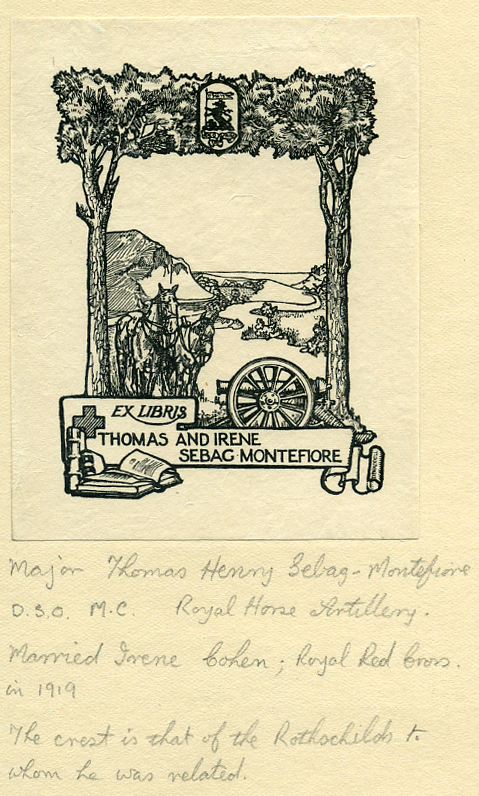 EX LIBRIS
THOMAS AND IRENE
SEBAG-MONTEFIORE
Major Thomas Henry Sebag-Montefiore
D.S.O. M.C. Royal Horse Artillery.
Married Irene Cohen; Royal Red Cross.
in 1919
The crest is that of the Rothschilds to
whom he was related.